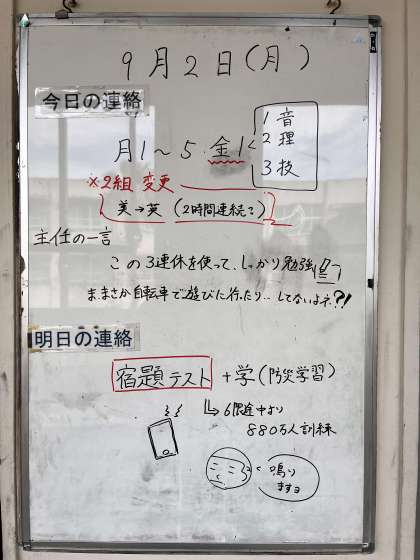 9月2日(月)
今日の連絡
月1〜5 金1
1 音
2 理
3 技
※2組 変更
美→英 (2時間連続で)
主任の一言
この3連休を使って、しっかり勉強
まさか自転車で遊びに行ったり‥してないよネ?!
明日の連絡
宿題テスト +学(防災学習)
↳6限途中より
880万人訓練
鳴り
ますョ